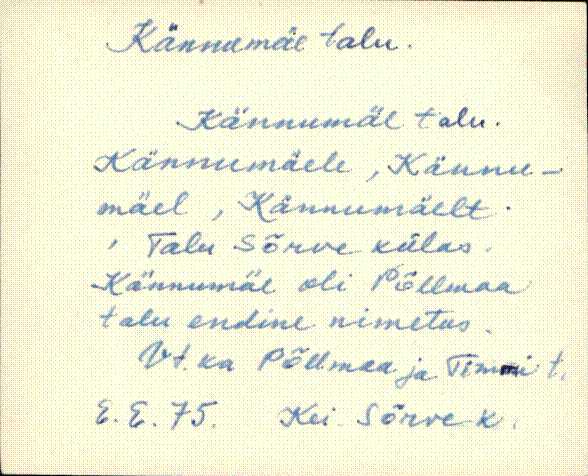 Kännumäe talu.
Kännumäe talu.
Kännumäele, Kännu-
mäel, Kännumäelt.
' Talu Sõrve külas.
Kännumäe oli Põllmaa
talu endine nimetus.
Vt. ka Põllmaa ja Timmi t.
E. E. 75. Kei. Sõrve k.